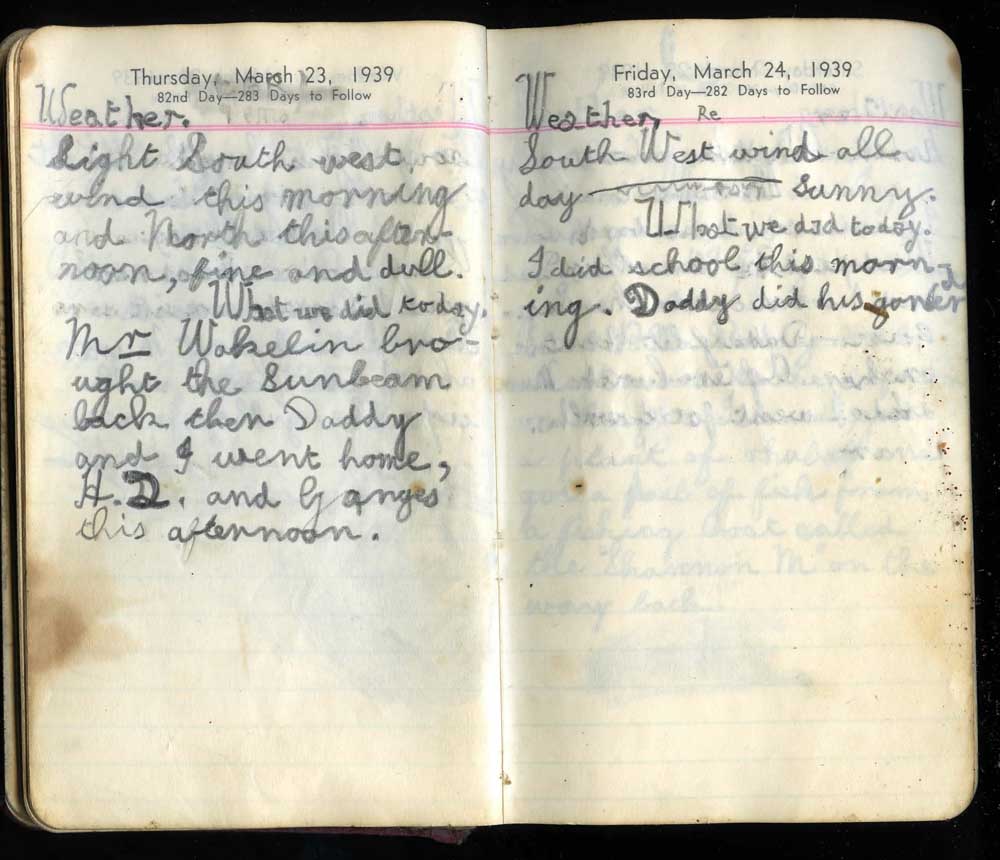 Thursday, March 23, 1939
82nd Day—283 Days to Follow
Weather.
Light South west
wind this morning
and North this after-
noon, fine and dull.
What we did today.
Mr Wakelin bro-
ught the Sunbeam
back then Daddy
and I went home,
H.D. and Ganges
this afternoon.
Friday, March 24, 1939
83rd Day—282 Days to Follow
Weather, Re
South West wind all
day Sunny.
What we did today.
I did school this morn-
ing. Daddy did his